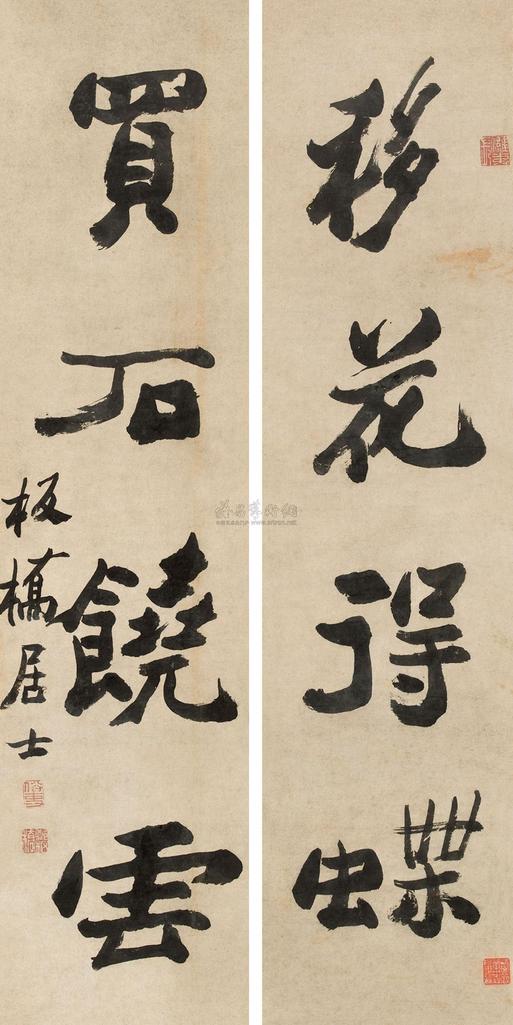 移花得蝶
買石饒雲
板橋居士
www.artron.net